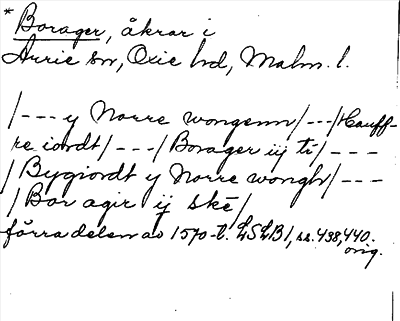 * Borager, åkrar i
Arrie sn, Oxie hd, Malm. l.
/--- y Norre wongenn/---/Hauff-
re iordt/---/Borager iij ti/---
/Bygiordt y Norre wongh/---
/Bor agir ij ské/
förra delen av 1570-t. LSLB1, ss. 438, 440.
orig.